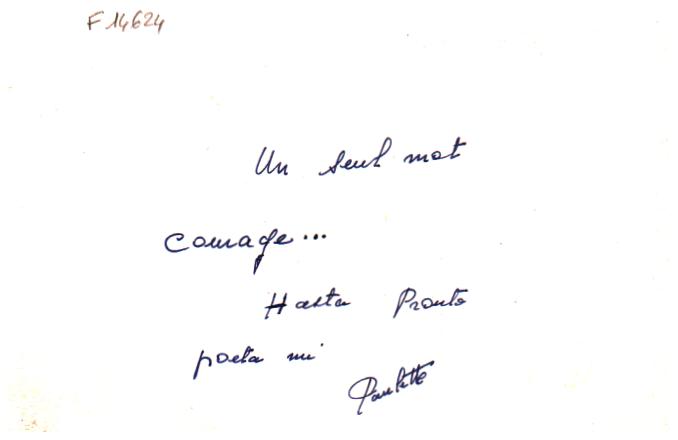 F 14624
Un seul mot
Courage...
Hasta Pronto
poeta mi
Paulette